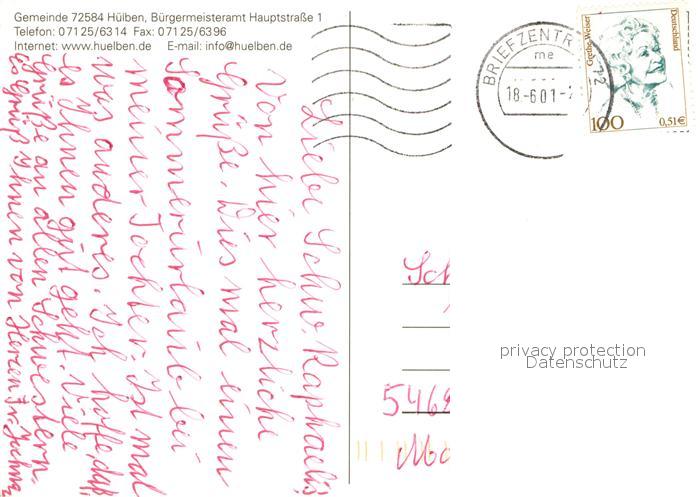 Gemeinde 72584 Hülben, Bürgermeisteramt Hauptstraße 1
Telefon: 07125/6314 Fax: 07125/6396
Internet: www.huelben.de E-mail: info@huelben.de
Liebe Schw. Raphaelis
Von hier herzliche
Grüße. Dies mal einen
Sommerurlaub bei
meiner Tochter. Ist mal
was anderes. Ich hoffe, daß
es Ihnen gut geht. Viele
Grüße an allen Schwestern.
es grüß Ihnen von Herzen
BRIEFZENTR
me
18-6.01-
72
Grethe Weiser
Deutschland
100
0,51€
Sch
5469
Mo
privacy protection
Datenschutz